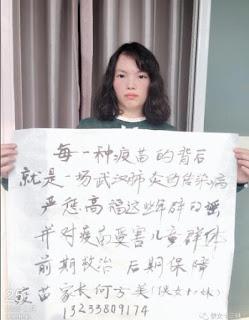 每一种疫苗的背后
就是一场武汉肺炎的传染病
严惩高福这些年肆的
并对疫苗受害儿童群体
前期救治 后期保障
疫苗家长何方美(侠女十三妹)
13233809174